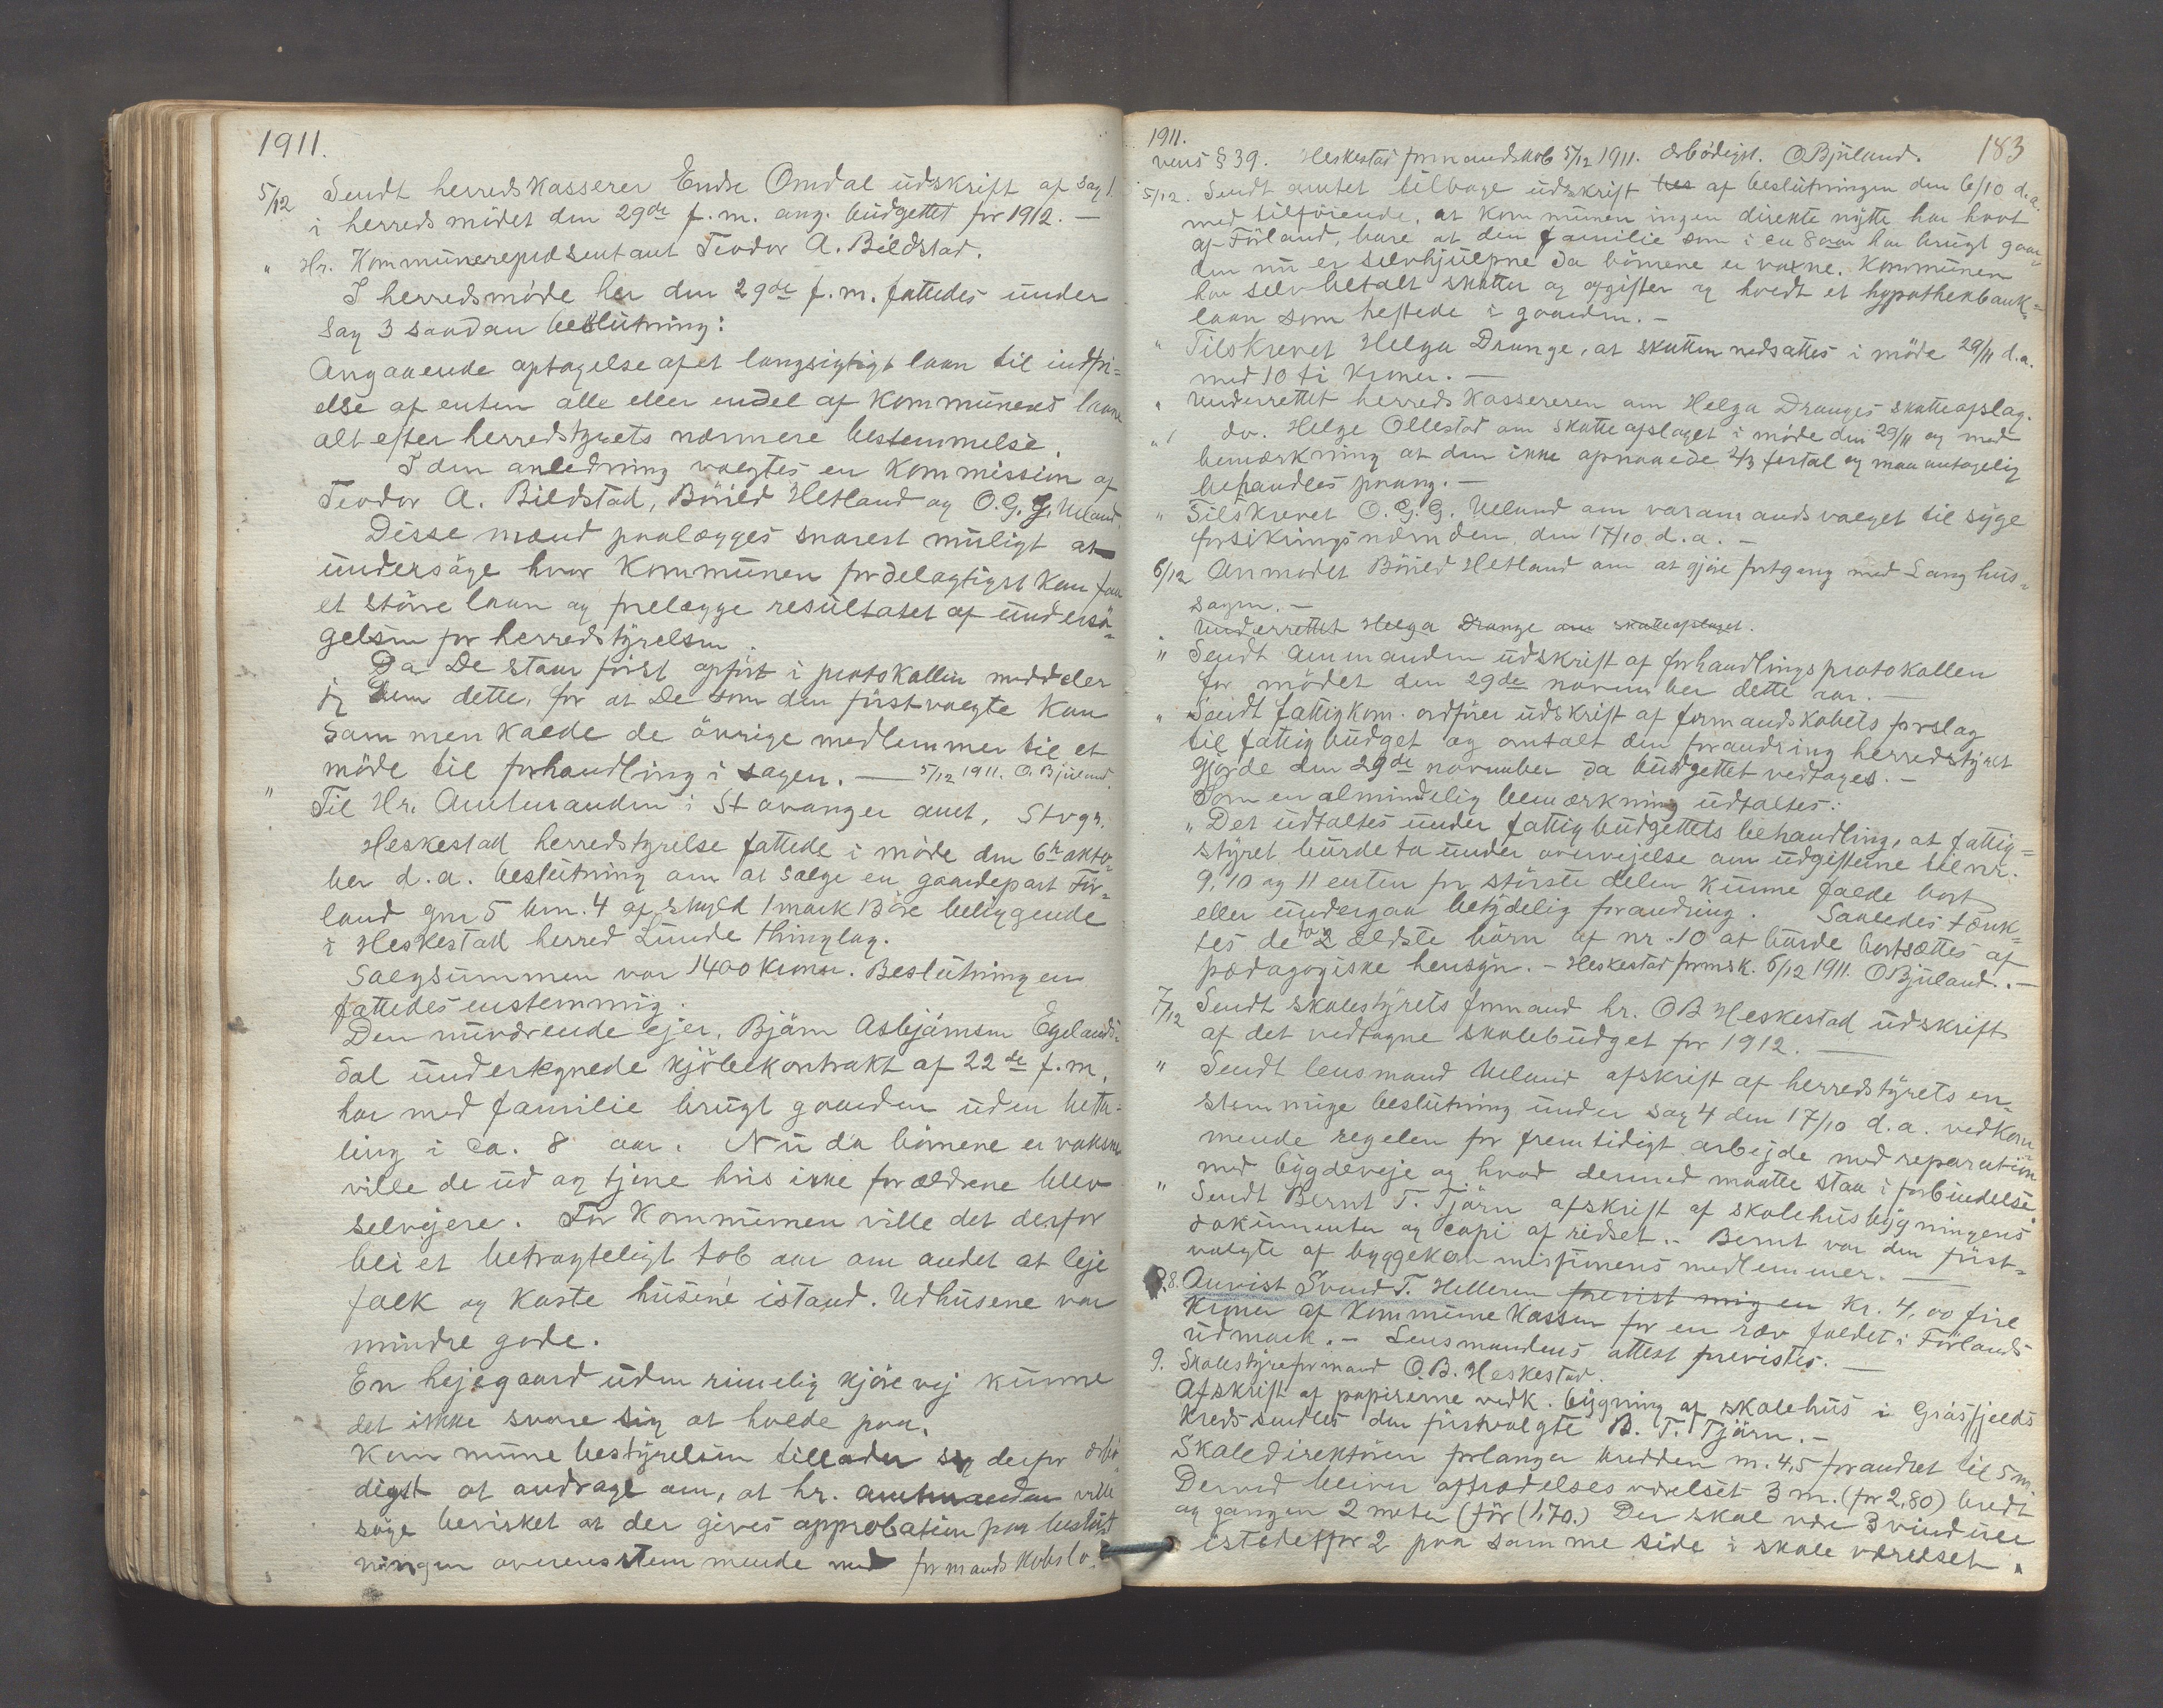 1911.
5/12 Sendt herredskasserer Endre Omdal udskrift af sag 1
i herredsmödet den 29de f.m. ang. budgettet for 1912. —
" Hr. Kommunerepræsentant Teodor A. Bildstad.
I herredsmöde her den 29de f.m. fattedes under
sag 3 saadan beslutning:
Angaaende optagelse af et langsigtigt laan til indfri=
else af enten alle eller endel af kommunens laane
alt efter herredstyrets nærmere bestemmelse.
I den anledning valgtes en kommission af
Teodor A. Bildstad, Böried Hetland og O.G.G. Ueland.
Disse mænd paalægges snarest muligt at
undersöge hvor kommunen fordelagtigst kan faa
et större laan og frelægge resultatet af undersö=
gelsen for herredstyrelsen.
Da De staar först opfört i protokollen meddeler
jeg Dem dette, for at De som den förstvalgte kan
sammenkalde de övrige medlemmer til et
möde til forhandling i sagen. — 5/12 1911. O. Bjuland.
" Til Hr. Amtmanden i Stavanger amt, Stvgr.
Heskestad herredstyrelse fattede i möde den 6te okto=
ber d.a. beslutning om at sælge en gaardepart För=
land gnr 5 brn. 4 af skyld 1 mark 13 öre beliggende
i Heskestad herred Lunde thinglag.
Salgsummen var 1400 kroner. Beslutningen
fattedes enstemmig.
Den nuværende ejer, Bjärn Asbjörnsen Egelands=
dal undertegnede kjöbekontrakt af 22de f.m.
har med familie brugt gaarden uden beta=
ling i ca. 8 aar. Nu da börnene er voksne
ville de ud og tjene hvis ikke forældrene blev
selvejere. For kommunen ville det derfor
bli et betragteligt tab aar om andet at leje
folk og koste husene istand. Udhusene var
mindre gode.
En hejegaard uden rimelig kjörevej kunne
det ikke svare sig at holde paa.
Kommunebestyrelsen tillader sig derfor ærbö=
digst at andrage om, at hr. amtmanden ville
söge bevirket at der gives approbation paa beslut=
ningen overensstemmende med formandskabslo=
1911. 183
vens § 39. Heskestad formandskab 5/12 1911. Ærbödigst. O Bjuland.
5/12. Sendt amtet tilbage udskrift af beslutningen den 6/10 d.a.
med tilföiende, at kommunen ingen direkte nytte har havt
af Förland, bare at den familie som i ca 8 aar har brugt gaar=
den nu er selvhjulpne da börnene er voxne. Kommunen
har selv betalt skatter og afgifter og hvedt et hypothekbank=
laan som heftede i gaarden. —
" Tilskrevet Helga Drange, at skatten nedsattes i möde 29/11 d.a.
med 10 ti kroner. —
" Underrettet herredskassereren om Helga Dranges skatteafslag.
" do. Helge Ollestad om skatteafslaget i möde den 29/11 og med
bemærkning at den ikke opnaaede 2/3 fertal og maa antagelig
behandles paany. —
" Tilskrevet O.G.G. Ueland om varamandsvalget til syge
forsikringsnævnden, den 17/10 d.a. —
6/12 Anmodet Böried Hetland om at gjöre fortgang med Langhus=
sagen. —
" Underrettet Helga Drange om skatteafslaget.
" Sendt Ammanden udskrift af forhandlingsprotokollen
for mödet den 29de november dette aar. —
" Sendt fattigkom. ordförer udskrift af formandskabets forslag
til fattigbudget og omtalt den forandring herredstyret
gjorde den 29de november da budgettet vedtoges. —
Som en almindelig bemærkning udtaltes:
" Det udtaltes under fattigbudgettets behandling, at fattig=
styret burde ta under overvejelse om udgifterne til nr.
9, 10 og 11 enten for störste delen kunne falde bort
eller undergaa betydelig forandring. Saaledes tænk=
tes de to 2 ældste börn af nr. 10 at burde bortsættes af
pædagogiske hensyn. — Heskestad formsk. 6/12 1911. O Bjuland. —
7/12 Sendt skolestyrets formand hr. OB Heskestad udskrift
af det vedtagne skolebudget for 1912. —
" Sendt lensmand Ueland afskrift af herredstyrets en=
stemmige beslutning under sag 4 den 17/10 d.a. vedkom=
mende regelen for fremtidigt arbejde med reparation
med bygdeveje og hvad dermed maatte staa i forbindelse.
" Sendt Bernt T. Tjörn afskrift af skolehusbygningens
dokumenter og copi af ridset. — Bernt var den först=
valgte af byggekommissionens medlemmer. —
8. Anvist Svend T. Helleren forevist mig en Kr. 4,00 fire
kroner af kommunekassen for en ræv fældet i Förlands
udmark. — Lensmandens attest forevistes. —
9. Skolestyreformand O.B. Heskestad.
Afskrift af papirerne vedk. bygning af skolehus i Gräsfjelds
kreds sendtes den förstvalgte B. T. Tjörn. —
Skoledirektören forlanger bredden m. 4,5 forandret til 5 m.
Derved bliver aftrædelsesværelset 3 m. (for 2,80) bredt
og gangen 2 meter (för (1,70.) Der skal være 3 vinduer
istedetfor 2 paa samme side i skoleværelset.